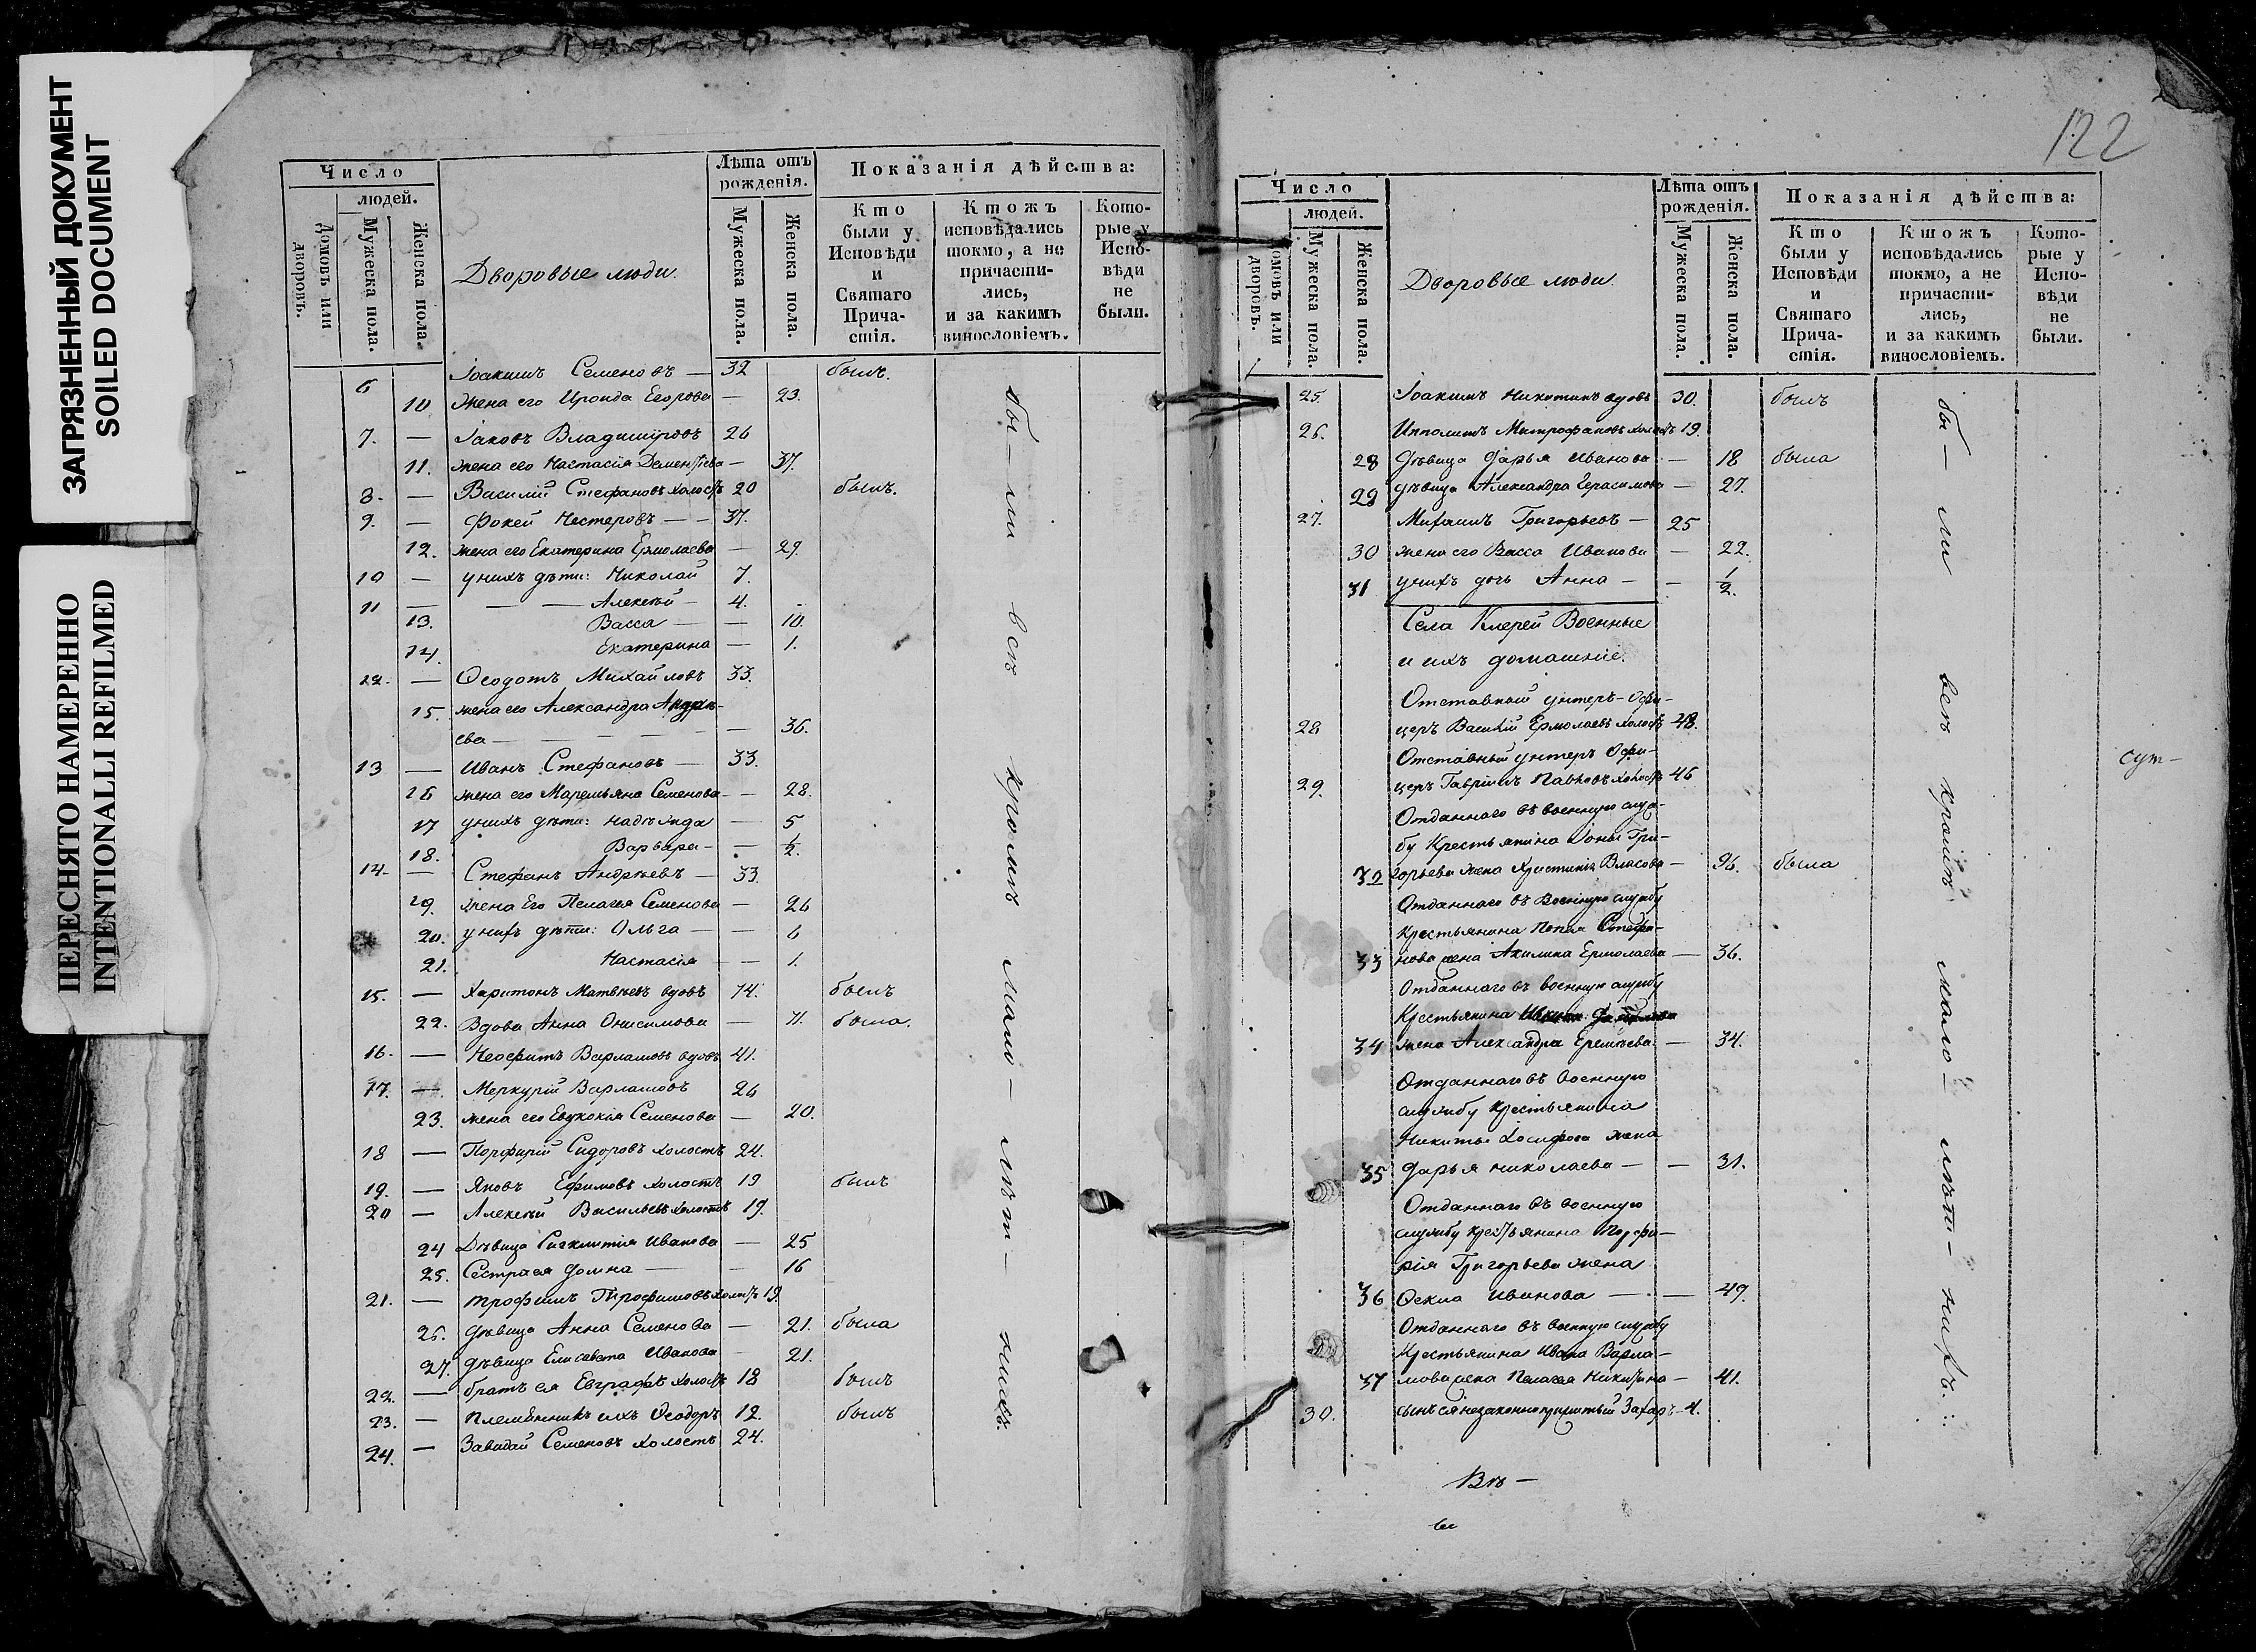 ЗАГРЯЗНЕННЫЙ ДОКУМЕНТ
SOILED DOCUMENT
ПЕРЕСНЯТО НАМЕРЕННО
INTENTIONALLI REFILMED
Число Лѣта отъ рожденія. Показанія дѣйства:
людей.
Домовъ или дворовъ. Мужеска пола. Женска пола. Дворовые люди Мужеска пола. Женска пола. Кто были у Исповѣди и Святаго Причастія. Ктожъ исповѣдались токмо, а не причастились, и за какимъ винословіемъ. Которые у Исповѣди не были.
6 Іоакимъ Семеновъ — 32 былъ.
10 жена его Ироида Егорова — 23.
7. — Іаковъ Владиміровъ 26
11. жена его Настасія Дементіева — 37.
8. — Василій Стефановъ холостъ 20 былъ.
9. — Фокей Нестеровъ — — 37.
12. жена его Екатерина Ермолаева — 29.
10 — у нихъ дѣти: Николай 7.
11 — — — Алексѣй — 4.
13. Васса — — 10.
14. Екатерина — 1.
12. — Ѳеодотъ Михайловъ 33.
15. жена его Александра Андрѣ-
ева — — — — — 36.
13 — Иванъ Стефановъ — 33.
16 жена его Маремьяна Семенова — — 28.
17 у нихъ дѣти: Надѣжда — 5
18. Варвара — — ½.
14. — Стефанъ Андрѣевъ — 33.
19. жена Его Пелагея Семенова — 26
20. у нихъ дѣти: Ольга — — 6
21. Настасія — 1.
15. — Харитонъ Матвѣевъ вдовъ 74. былъ
22. Вдова Анна Онисимова — 71. была.
16. — Неофитъ Варламовъ вдовъ 41.
17. — Меркурій Варламовъ 26
23. жена его Евдокія Семенова — 20.
18 — Порфирій Сидоровъ холостъ 24.
19. — Яковъ Ефимовъ холостъ 19 былъ
20 — Алексѣй Васильевъ холостъ 19.
24 Дѣвица Синклитія Иванова — 25
25. Сестра ея Домна — — 16
21. — Трофимъ Трофимовъ холостъ 19.
26. дѣвица Анна Семенова — 21. была
27. дѣвица Елисавета Иванова 21.
22. — братъ ея Евграфъ холостъ 18 былъ
23. — Племянникъ ихъ Ѳеодоръ 12. былъ
24. — Завадай Семеновъ холостъ 24.
бы — ли всѣ кромѣ мало — лѣт — нихъ.
122
Число Лѣта отъ рожденія. Показанія дѣйства:
людей.
Домовъ или дворовъ. Мужеска пола. Женска пола. Дворовые люди. Мужеска пола. Женска пола. Кто были у Исповѣди и Святаго Причастія. Ктожъ исповѣдались токмо, а не причастились, и за какимъ винословіемъ. Которые у Исповѣди не были.
25. Іоакимъ Никитинъ вдовъ 30. былъ
26. Ипполитъ Митрофановъ холостъ 19.
28 Дѣвица Дарья Иванова — 18 была
29 дѣвица Александра Герасимова — 27.
27. Михаилъ Григорьевъ — 25
30 жена его Васса Иванова — 22.
31 у нихъ дочь Анна — — ½.
Села Клерей Военные
и ихъ домашніе.
Отставный унтеръ-офи-
28 церъ Василій Ермолаевъ холостъ 48.
Отставный унтеръ Офи-
29. церъ Гавріилъ Павловъ холостъ 46
Отданнаго въ военную служ-
бу Крестьянина Іоны Гри-
32 горьева жена Христинія Власова — 96. была
Отданнаго въ Военную службу
Крестьянина Стефа-
33 нова жена Акилина Ермолаева — 36.
Отданнаго въ военную службу
Крестьянина
34 жена Александра Еремѣева. — 34.
Отданнаго въ военную
службу Крестьянина
Никиты Іосифова жена
35 Дарья Николаева — — 31.
Отданнаго въ военную
службу крестьянина Порфи-
рія Григорьева жена
36 Ѳекла Иванова — — 49.
Отданнаго въ военную службу
Крестьянина Ивана Варла-
37 мова жена Пелагея Никитина — 41.
30. сынъ ея незаконноприжитый Захаръ — 4.
бы — ли всѣ кромѣ мало — лѣт — нихъ.
сут —
Въ —